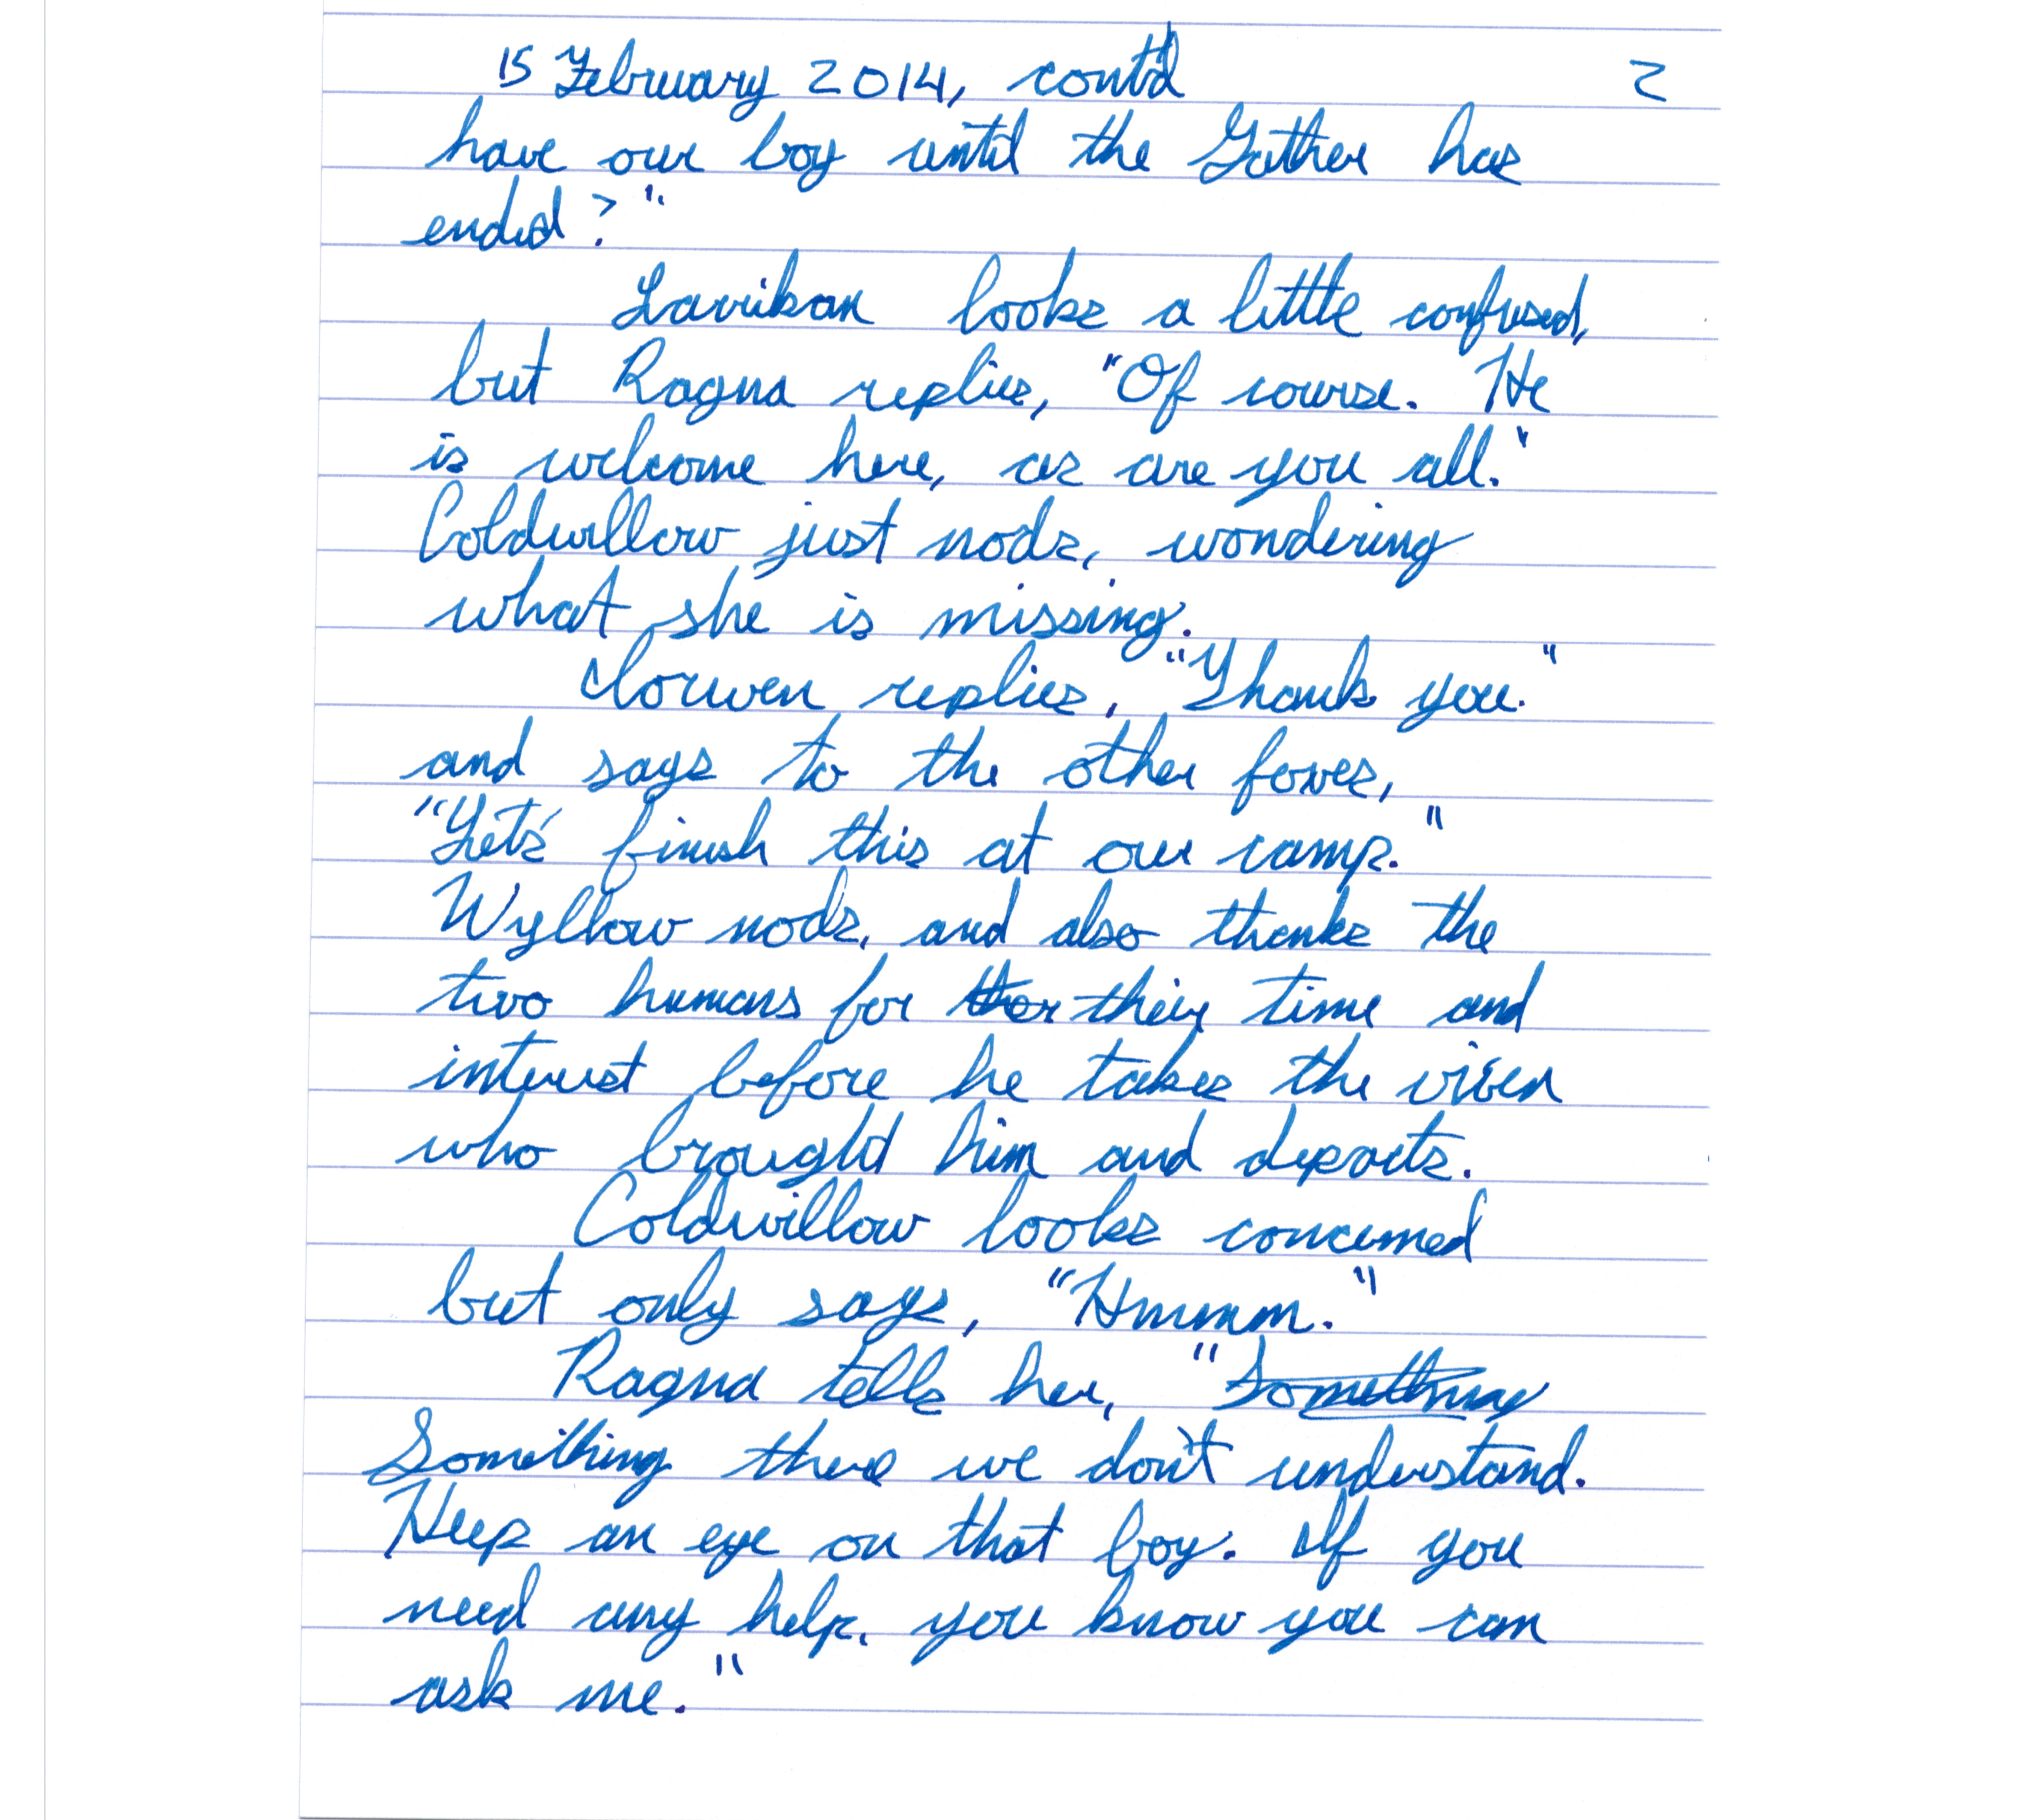 15 February 2014, cont'd 2
have our boy until the Gather has
ended?"
Lavikan looks a little confused,
but Ragna replies, "Of course. He
is welcome here, as are you all."
Coldwillow just nods, wondering
what she is missing.
Iorwen replies, "Thank you."
and says to the other foxes,
"Let's finish this at our camp."
Wyllow nods, and also thanks the
two humans for ther their time and
interest before he takes the vixen
who brought him and departs.
Coldwillow looks concerned
but only says, "Hmmm."
Ragna tells her, "Something
Something there we don't understand.
Keep an eye on that boy. If you
need any help, you know you can
ask me."